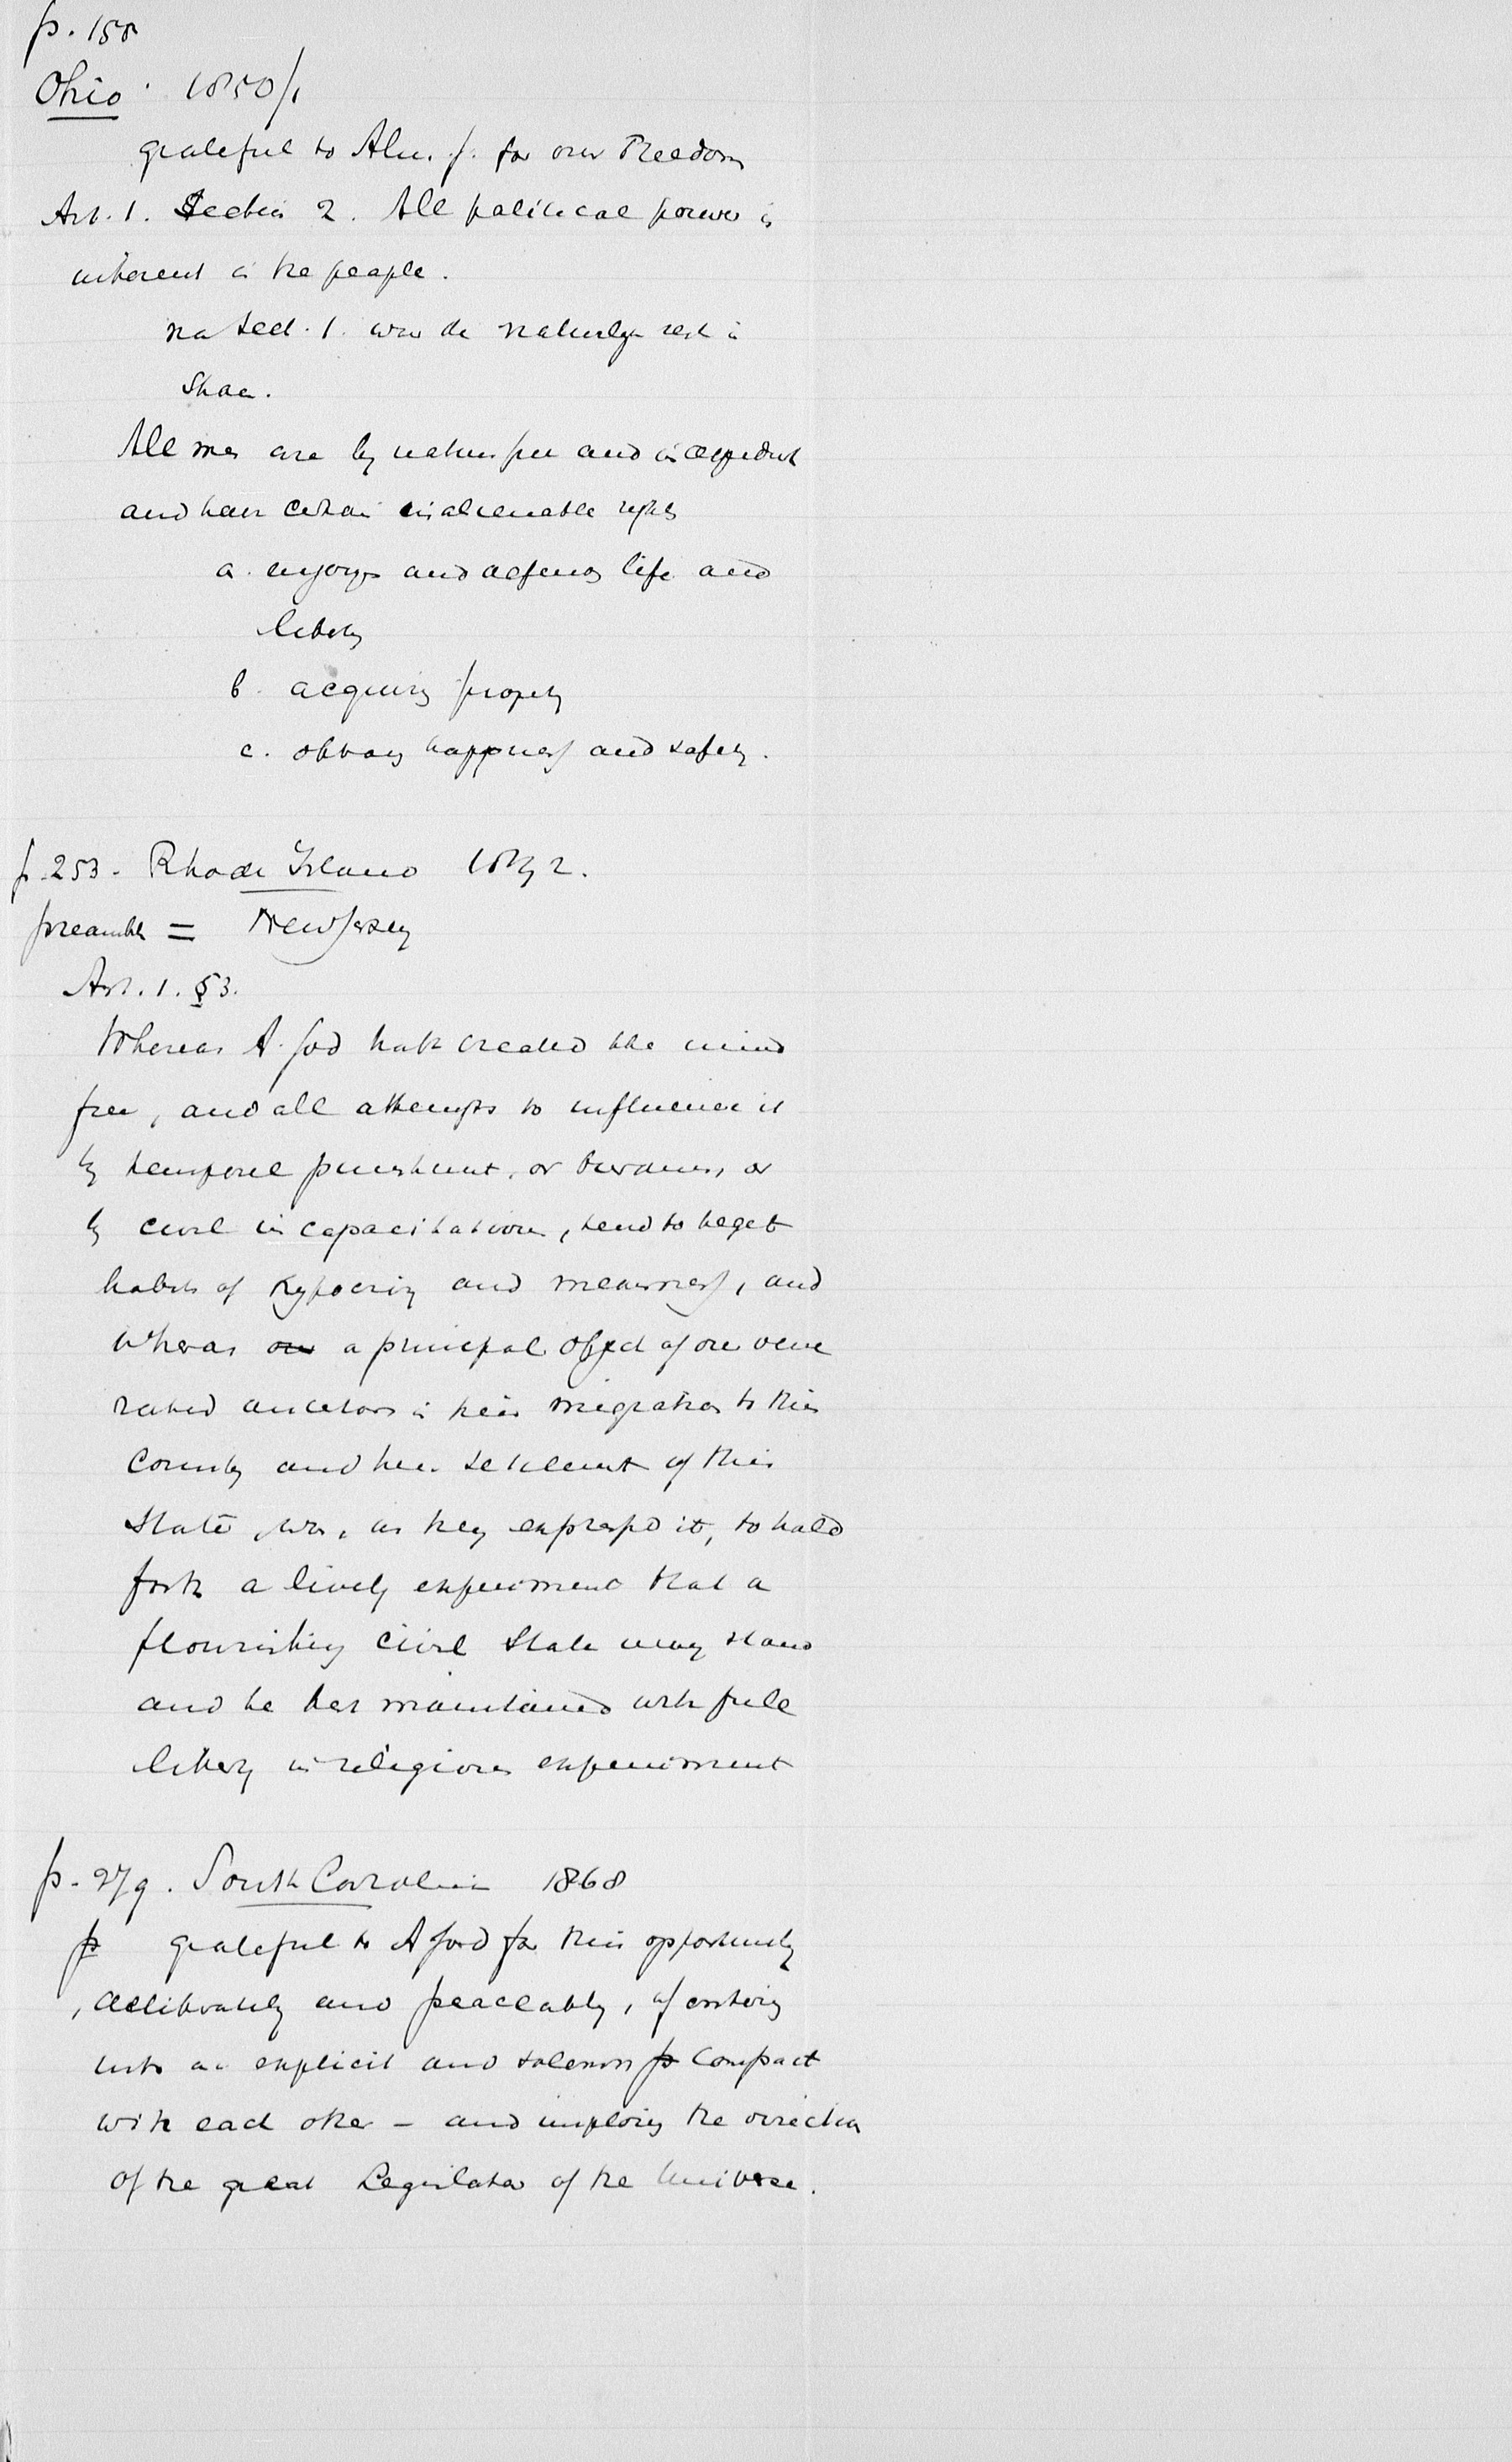 p. 158
Ohio. 1850/1
grateful to Alm. g. for our Freedom
Art. 1. Section 2. All political power is
inherent in the people.
Sect. 1.
All men are by nature free and independent
and have certain inalienable rights
a. enjoying and defending life and
liberty
b. acquiring property
c. obtaing happiness and safety.
p. 253. Rhode Island
preamble = New Jersey
Art. 1. § 3.
Whereas A. God hath created the mind
free, and all attempts to influence it
by temporal punishment, or burdens, or
by civil incapacitations, tend to beget
habits of hypocrisy and meanness, and
whereas a principal object of our vene
rated ancestors in their migration to this
Country and their settlement of this
State, was, as they expressed it, to hold
forth a lively experiment that a
flourishing civil State may stand
and be best maintained with full
liberty in religious experiment
p. 279. South Carolina 1868
grateful to A God for this opportunity
, deliberately and peaceably, of entering
into an explicit and solemn Compact
with each other – and imploring the direction
of the great Legislator of the Universe.